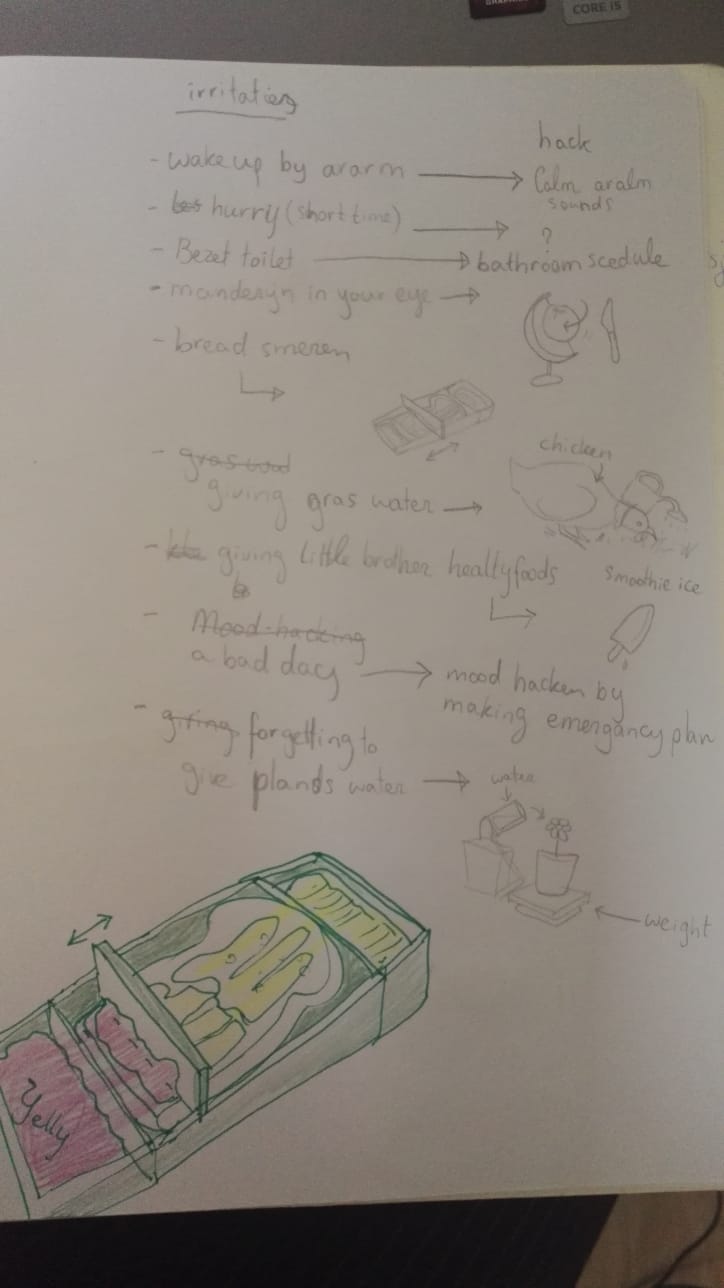 CORE i5
irritaties
hack
- wake up by ararm → Calm aralm
sounds
- hurry (short time) → ?
- Bezet toilet → bathroom scedule
- mandesijn in your eye →
- bread smeren
chicken
- gras
giving gras water →
- giving little brother healty foods
smoothie ice
- Mood hacking
a bad day → mood hacken by
making emergancy plan
- giving forgetting to
give plands water → water
weight
Yelly